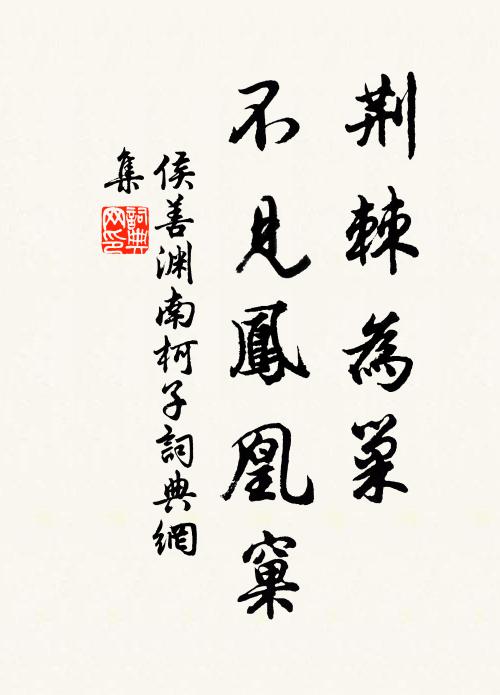 荆棘為巢
不見鳳凰窠
侯善渊南柯子詞典網
集
詞典
网印